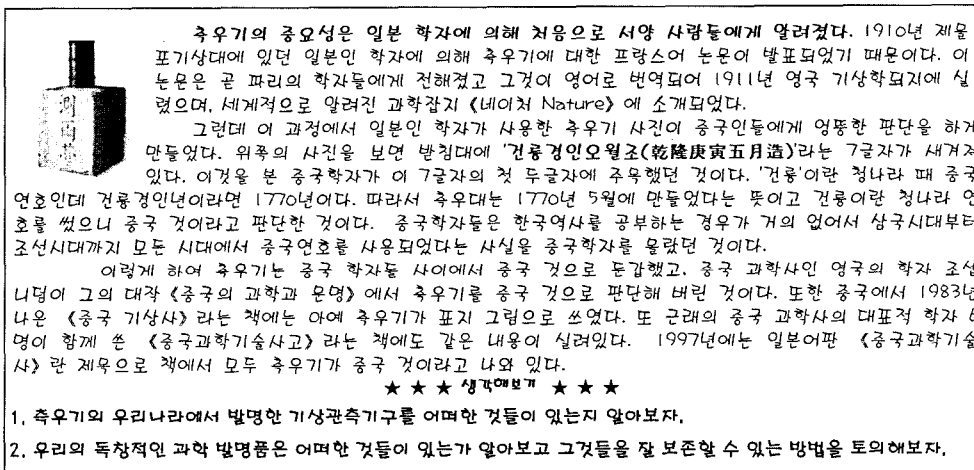 측우기의 중요성은 일본 학자에 의해 처음으로 서양 사람들에게 알려졌다. 1910년 제물
포기상대에 있던 일본인 학자에 의해 측우기에 대한 프랑스어 논문이 발표되었기 때문이다. 이
논문은 곧 파리의 학자들에게 전해졌고 그것이 영어로 번역되어 1911년 영국 기상학회지에 실
렸으며, 세계적으로 알려진 과학잡지 《네이처 Nature》 에 소개되었다.
그런데 이 과정에서 일본인 학자가 사용한 측우기 사진이 중국인들에게 엉뚱한 판단을 하게
만들었다. 위쪽의 사진을 보면 받침대에 '건륭경인오월조(乾隆庚寅五月造)'라는 7글자가 새겨져
있다. 이것을 본 중국학자가 이 7글자의 첫 두글자에 주목했던 것이다. '건륭'이란 청나라 때 중국
연호인데 건륭경인년이라면 1770년이다. 따라서 측우대는 1770년 5월에 만들었다는 뜻이고 건륭이란 청나라 연
호를 썼으니 중국 것이라고 판단한 것이다. 중국학자들은 한국역사를 공부하는 경우가 거의 없어서 삼국시대부터
조선시대까지 모든 시대에서 중국연호를 사용되었다는 사실을 중국학자를 몰랐던 것이다.
이렇게 하여 측우기는 중국 학자들 사이에서 중국 것으로 둔갑했고, 중국 과학사인 영국의 학자 조셉
니덤이 그의 대작 《중국의 과학과 문명》 에서 측우기를 중국 것으로 판단해 버린 것이다. 또한 중국에서 1983년
나온 《중국 기상사》 라는 책에는 아예 측우기가 표지 그림으로 쓰였다. 또 근래의 중국 과학사의 대표적 학자
명이 함께 쓴 《중국과학기술사고》 라는 책에도 같은 내용이 실려있다. 1997년에는 일본어판 《중국과학기술
사》 란 제목으로 책에서 모두 측우기가 중국 것이라고 나와 있다.
★ ★ ★ 생각해보기 ★ ★ ★
1. 측우기의 우리나라에서 발명한 기상관측기구를 어떠한 것들이 있는지 알아보자.
2. 우리의 독창적인 과학 발명품은 어떠한 것들이 있는가 알아보고 그것들을 잘 보존할 수 있는 방법을 토의해보자.